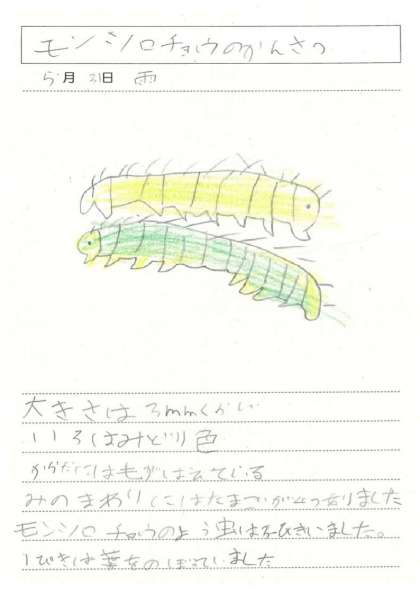 モンシロチョウのかんさつ
5月31日 雨
大きさは3mmくらい
いろはみどり色
からだには毛がはえている
みのまわりにはたまごが4つありました
モンシロチョウのよう虫は3びきいました。
1ぴきは葉をのぼっていました